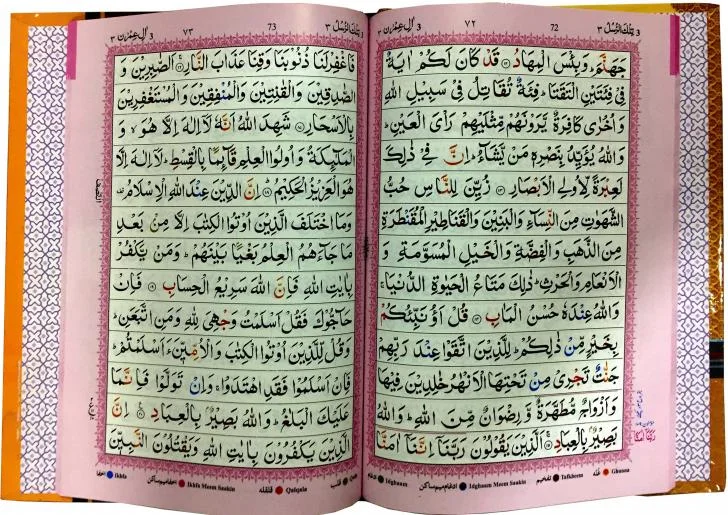 تلك الرسل ٣
72
٧٢
3 اٰل عمرٰن ٣
جَهَنَّمَ وَبِئْسَ الْمِهَادُ قَدْ كَانَ لَكُمْ اٰيَةٌ
فِىْ فِئَتَيْنِ الْتَقَتَا فِئَةٌ تُقَاتِلُ فِىْ سَبِيْلِ اللّٰهِ
وَاُخْرٰى كَافِرَةٌ يَّرَوْنَهُمْ مِّثْلَيْهِمْ رَاْىَ الْعَيْنِ
وَاللّٰهُ يُؤَيِّدُ بِنَصْرِهٖ مَنْ يَّشَآءُ اِنَّ فِىْ ذٰلِكَ
لَعِبْرَةً لِّاُولِى الْاَبْصَارِ زُيِّنَ لِلنَّاسِ حُبُّ
الشَّهَوٰتِ مِنَ النِّسَآءِ وَالْبَنِيْنَ وَالْقَنَاطِيْرِ الْمُقَنْطَرَةِ
مِنَ الذَّهَبِ وَالْفِضَّةِ وَالْخَيْلِ الْمُسَوَّمَةِ وَ
الْاَنْعَامِ وَالْحَرْثِ ذٰلِكَ مَتَاعُ الْحَيٰوةِ الدُّنْيَا
وَاللّٰهُ عِنْدَهٗ حُسْنُ الْمَاٰبِ قُلْ اَؤُنَبِّئُكُمْ
بِخَيْرٍ مِّنْ ذٰلِكُمْ لِلَّذِيْنَ اتَّقَوْا عِنْدَ رَبِّهِمْ
جَنّٰتٌ تَجْرِىْ مِنْ تَحْتِهَا الْاَنْهٰرُ خٰلِدِيْنَ فِيْهَا
وَاَزْوَاجٌ مُّطَهَّرَةٌ وَّرِضْوَانٌ مِّنَ اللّٰهِ وَاللّٰهُ
بَصِيْرٌۢ بِالْعِبَادِ اَلَّذِيْنَ يَقُوْلُوْنَ رَبَّنَآ اِنَّنَآ اٰمَنَّا
غنّہ Ghunna
تفخیم Tafkheem
ادغام میم ساکن Idghaam Meem Saakin
ادغام Idghaam
3 تلك الرسل ٣
73
٧٣
3 اٰل عمرٰن ٣
فَاغْفِرْلَنَا ذُنُوْبَنَا وَقِنَا عَذَابَ النَّارِ اَلصّٰبِرِيْنَ وَ
الصّٰدِقِيْنَ وَالْقٰنِتِيْنَ وَالْمُنْفِقِيْنَ وَالْمُسْتَغْفِرِيْنَ
بِالْاَسْحَارِ شَهِدَ اللّٰهُ اَنَّهٗ لَآ اِلٰهَ اِلَّا هُوَ وَ
الْمَلٰٓئِكَةُ وَاُولُوا الْعِلْمِ قَآئِمًۢا بِالْقِسْطِ لَآ اِلٰهَ اِلَّا
هُوَ الْعَزِيْزُ الْحَكِيْمُ اِنَّ الدِّيْنَ عِنْدَ اللّٰهِ الْاِسْلَامُ
وَمَا اخْتَلَفَ الَّذِيْنَ اُوْتُوا الْكِتٰبَ اِلَّا مِنْۢ بَعْدِ
مَا جَآءَهُمُ الْعِلْمُ بَغْيًۢا بَيْنَهُمْ وَمَنْ يَّكْفُرْ
بِاٰيٰتِ اللّٰهِ فَاِنَّ اللّٰهَ سَرِيْعُ الْحِسَابِ فَاِنْ
حَآجُّوْكَ فَقُلْ اَسْلَمْتُ وَجْهِىَ لِلّٰهِ وَمَنِ اتَّبَعَنِ
وَقُلْ لِّلَّذِيْنَ اُوْتُوا الْكِتٰبَ وَالْاُمِّيّٖنَ ءَاَسْلَمْتُمْ
فَاِنْ اَسْلَمُوْا فَقَدِ اهْتَدَوْا وَاِنْ تَوَلَّوْا فَاِنَّمَا
عَلَيْكَ الْبَلٰغُ وَاللّٰهُ بَصِيْرٌۢ بِالْعِبَادِ اِنَّ
الَّذِيْنَ يَكْفُرُوْنَ بِاٰيٰتِ اللّٰهِ وَيَقْتُلُوْنَ النَّبِيّٖنَ
قلب
قلقلہ Qalqala
اخفا میم ساکن Ikhfa Meem Saakin
اخفا Ikhfa